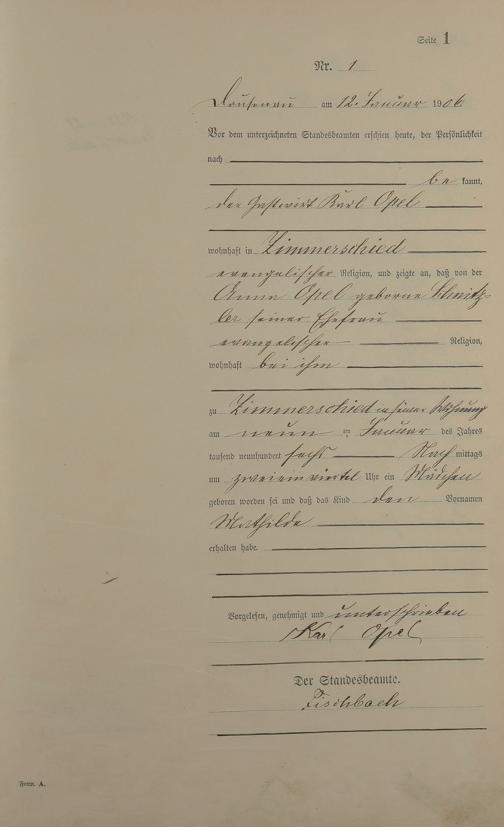 Seite 1
Nr. 1
Dausenau am 12. Januar 1906
Vor dem unterzeichneten Standesbeamten erschien heute, der Persönlichkeit
nach
be kannt,
der Gastwirt Karl Opel
wohnhaft in Zimmerschied
evangelischer Religion, und zeigte an, daß von der
Anna Opel geborne Schnitz-
ler seiner Ehefrau
evangelischer Religion,
wohnhaft bei ihm
zu Zimmerschied in seiner Wohnung
am neun ten Januar des Jahres
tausend neunhundert sechs Nach mittags
um zweieinviertel Uhr ein Mädchen
geboren worden sei und daß das Kind den Vornamen
Mathilde
erhalten habe.
Vorgelesen, genehmigt und unterschrieben
Karl Opel
Der Standesbeamte.
Fischbach
Form. A.